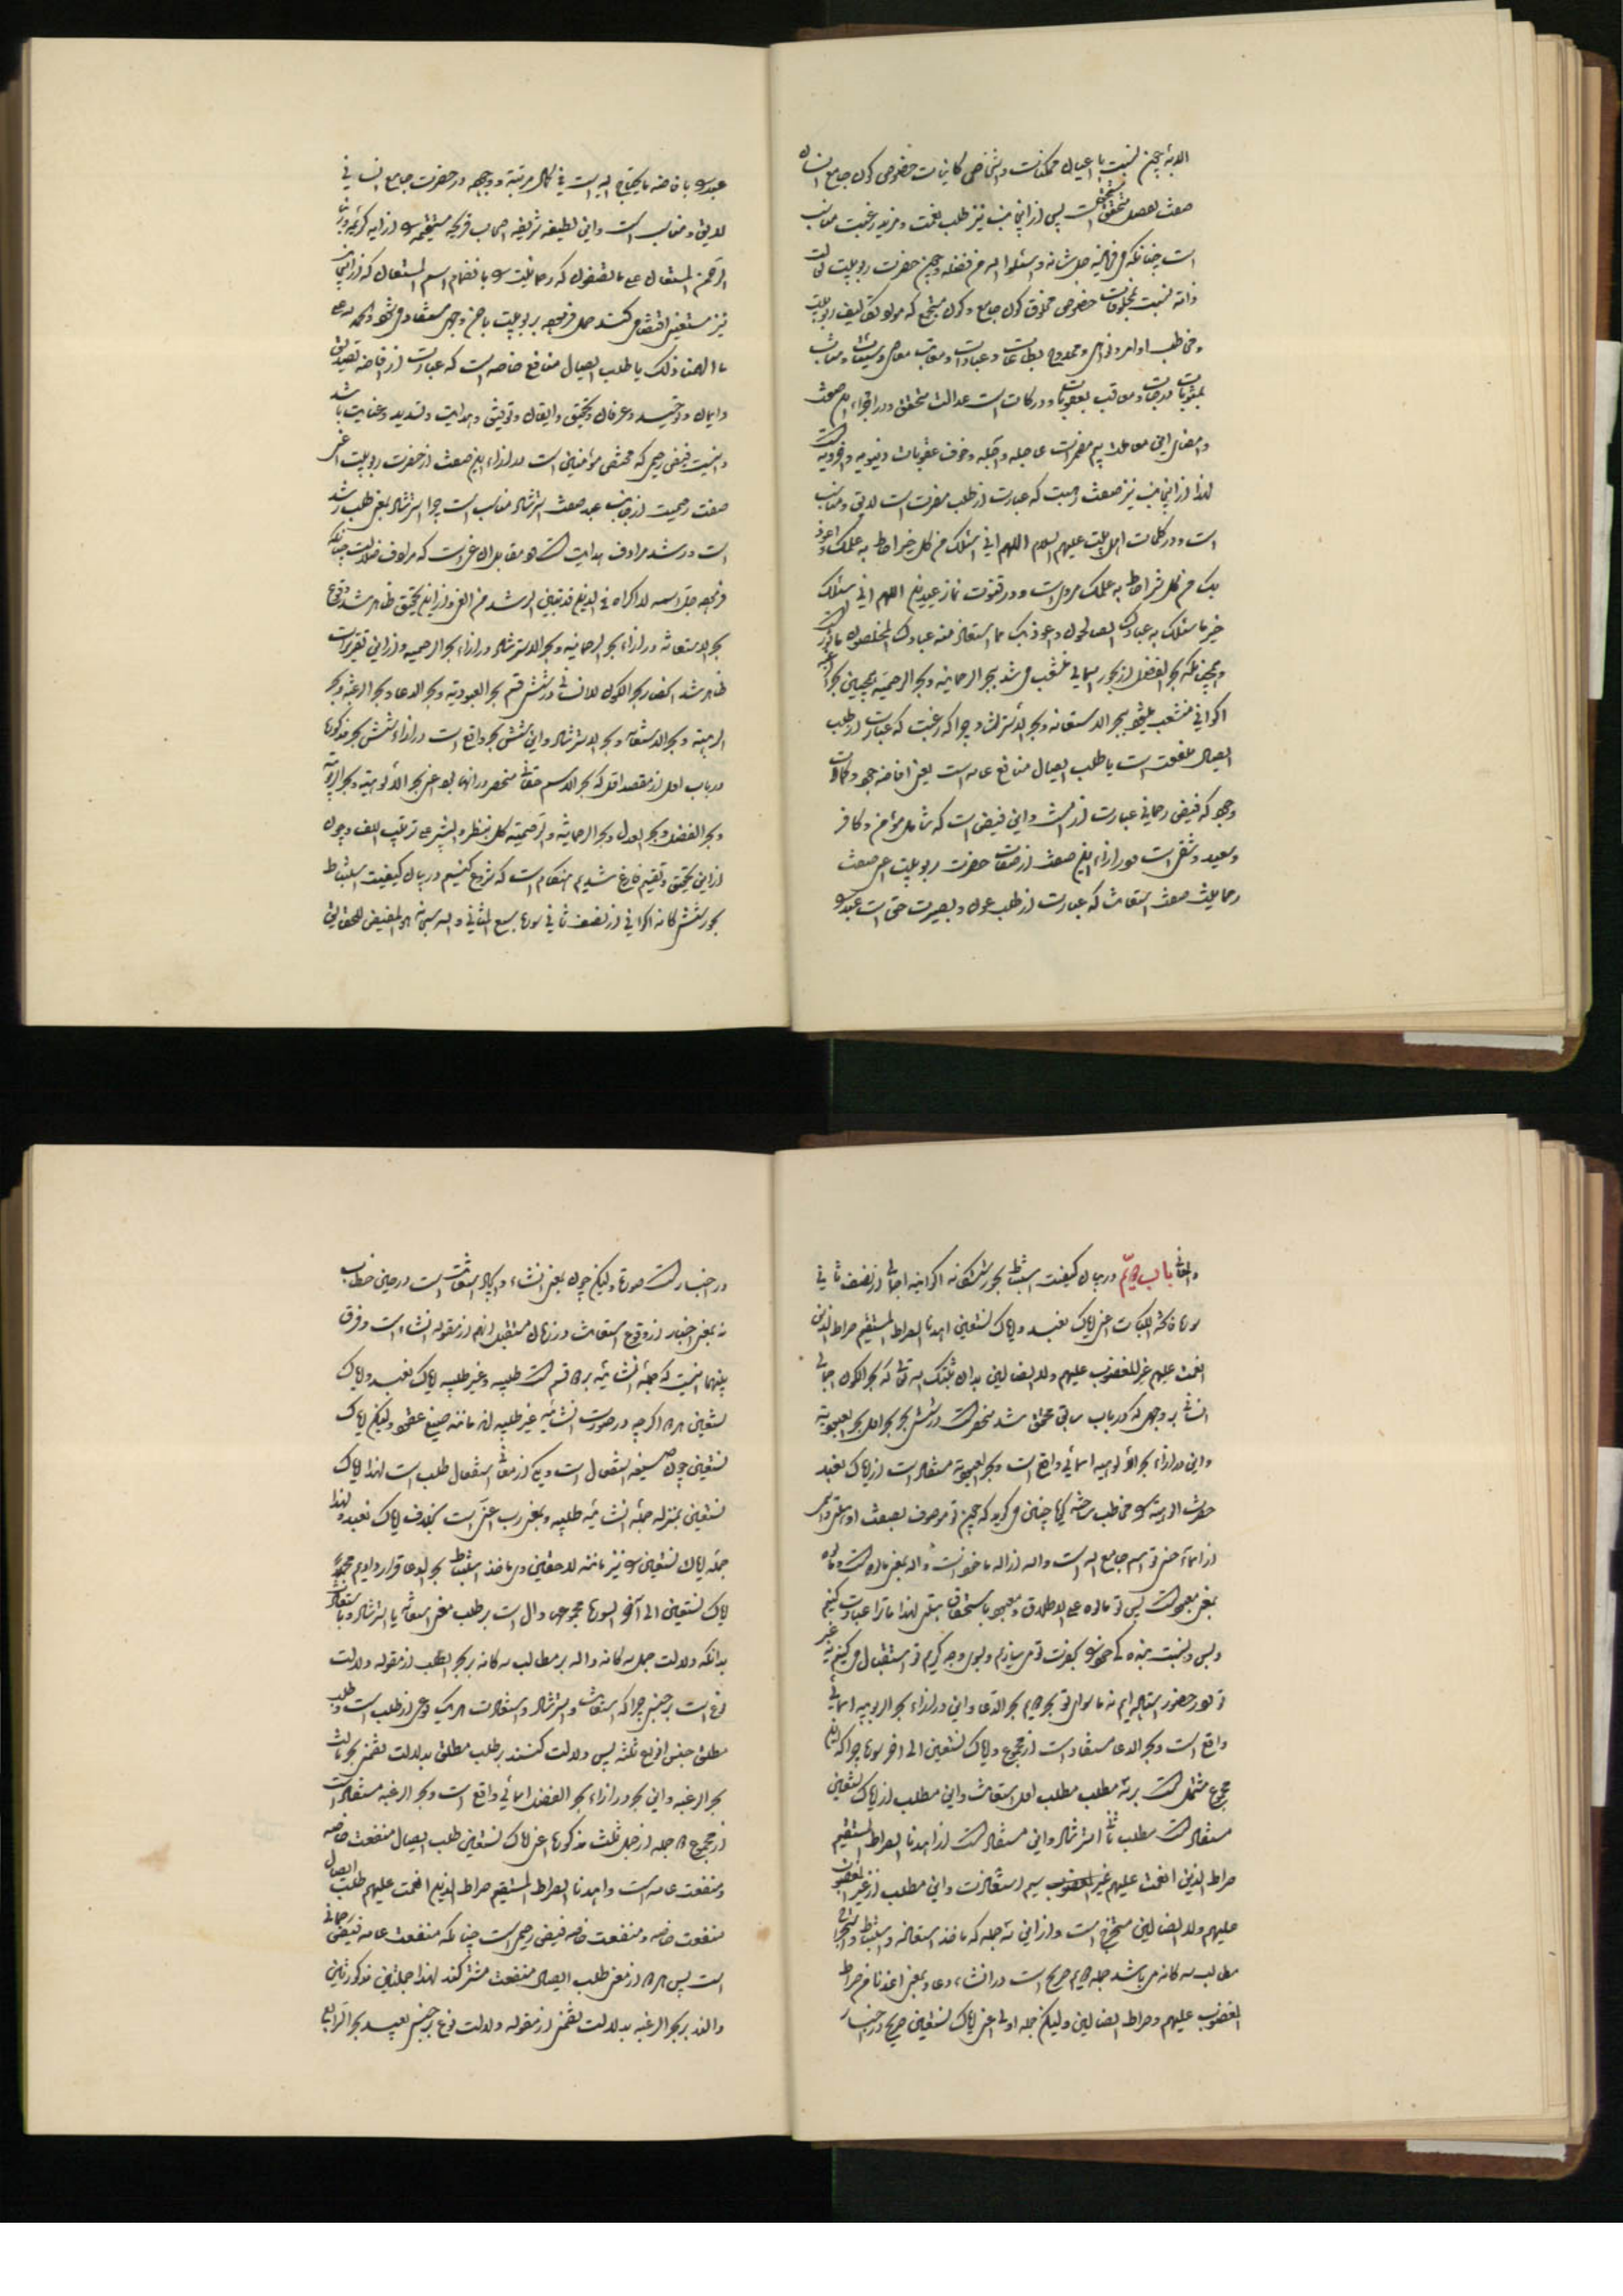 الابهٔ چون نسبت با اعیان ممکنات و اشخاص کاینات خصوصی کون جامع انسان
صفت بفضل متحقق است پس از اینجانب نیز طلب نعمت و مزید رغبت مناسب
است چنانکه فرماید جل شانه و اسئلوا الله من فضله و چون حضرت ربوبیت
ذاته نسبت بمخلوقات خصوصی مخلوق کون جامع و کون مجتمع که
و مخاطب اوامر و نواهی و ممدوح بطاعات و عبادات و معاتب معاصی و سیئات و مثاب
بمثوبات درجات و معاقب بعقوبات و درکات است عدالت متحقق و در اجراء این صفت
و امضای این معامله بیم مضرات عاجله و آجله و خوف عقوبات دنیویه و اخرویه است
لهذا از اینجانب نیز صفت رهبت که عبارت از طلب مفرت است لایق و مناسب
است و در کلمات اهل بیت علیهم السلام اللهم انی اسئلک من کل خیر احاط به علمک و اعوذ
بک من کل شر احاط به علمک مرویست و در قنوت نماز عیدین اللهم انی اسئلک
خیر ما سئلک به عبادک الصالحون و اعوذ بک مما استعاذ منه عبادک المخلصون ماثور است
و همچنانکه بحر الفضل از بحور اسمائی منشعب می شد ببحر الرحمانیه و بحر الرحیمیه همچنین بحر الرغبه
اکوانی منشعب میشود ببحر الاستعانه و بحر الاسترشاد چرا که رغبت که عبارت از طلب
ایصال منفعت است یا طلب ایصال منافع عامه است یعنی افاضه وجود و کمالات
وجود که فیض رحمانی عبارت از آنست و این فیض است که شامل مؤمن و کافر
و سعید و شقی است و در ازاء این صفت از صفات حضرت ربوبیت اعنی صفت
رحمانیت صفت استعانت که عبارت از طلب عون و بصیرت حق است عبد را
عبد را بافاضه ما یحتاج الیه است فی کمال مرتبة وجوده در حضرت جامع انسانی
لایق و مناسب است و این لطیفه شریفه اصحاب قریحه مستقیمه را از آیه کریمه و ربنا
الرحمن المستعان علی ما تصفون که رحمانیت را بانضمام اسم المستعان که از اینجانب
نیز مستعین اقتضا می کند حمل فرموده بر ربوبیت باحسن وجهی مستفاد می شود و الحمد لله علی
ما الهمنا ذلک یا طلب ایصال منافع خاصه است که عبارت از افاضه تصدیق
و ایمان و توحید و عرفان و تحقیق و ایقان و توفیق و هدایت و تسدید و عنایت باشد
و اینست فیض رحیمی که مختص مؤمنین است و در ازاء این صفت از حضرت ربوبیت اعنی
صفت رحیمیت از جانب عبد صفت استرشاد مناسب است چرا استرشاد بمعنی طلب رشد
است و رشد مرادف هدایت است و مقابل آن غی است که مرادف ضلالت چنانکه
فرموده جل اسمه لا اکراه فی الدین قد تبین الرشد من الغی و از این تحقیق ظاهر شد وقوع
بحر الاستعانه در ازاء بحر الرحمانیه و بحر الاسترشاد در ازاء بحر الرحیمیه و از این تقریرات
ظاهر شد انحصار بحر الکون للانسانی در شش قسم بحر العبودیه و بحر الدعا و بحر الرغبه و بحر
الرهبه و بحر الاستعانه و بحر الاسترشاد و این شش بحر واقع است در ازاء شش بحر مذکوره
در باب اول از مقصد اول که بحر الاسم حقانی منحصر در آنها بود اعنی بحر الالوهیته و بحر الربوبیه
و بحر الفضل و بحر العدل و بحر الرحمانیه و الرحیمیه کل بنظره البشر علی ترتیب اللف و چون
از این تحقیق و تقسیم فارغ شدیم هنگام است که شروع کنیم در بیان کیفیت استنباط
بحور ششگانه اکوانی از نصف ثانی سوره سبع المثانی و الله سبحانه هو المفیض للحقایق
باب دوم در بیان کیفیت استنباط بحور ششگانه اکوانیه اجمالی از نصف ثانی
سوره فاتحه الکتاب اعنی ایاک نعبد و ایاک نستعین اهدنا الصراط المستقیم صراط الذین
انعمت علیهم غیر المغضوب علیهم و لا الضالین بدان ثبتک الله تعالی که بحر الکون اجمالی
انسانی بر وجهی که در باب سابق محقق شد منحصر است در شش بحر بحر اول بحر العبودیه
و این در ازاء بحر الالوهیه اسمائی واقع است و بحر العبودیه مستفاد است از ایاک نعبد
حضرت الوهیت را مخاطب ساخته گویا چنین می گوید که چون تو موصوف بصفت
از اسماء حسنی تو اسم جامع الله است و اله از اله ماخوذ است و اله بمعنی مالوه است و مالوه
بمعنی معبود است پس تو مالوه علی الاطلاق و معبود باستحقاق هستی لهذا ما ترا عبادت می کنیم
و بس و نسبت بنده گی خود را بحضرت تو می سازیم و بسوی وجه کریم تو استقبال می کنیم نه غیر
تو و در حضور استاده ایم نه ما سوای تو بحر دویم بحر الدعا و این در ازاء بحر الربوبیه اسمائی
واقع است و بحر الدعا مستفاد است از مجموع و ایاک نستعین الی آخر سوره چرا که این
مجموع مشتمل است بر سه مطلب مطلب اول استعانت و این مطلب از ایاک نستعین
مستفاد است مطلب ثانی استرشاد و این مستفاد است از اهدنا الصراط المستقیم
صراط الذین انعمت علیهم سیم استعاذت و این مطلب از غیر المغضوب
علیهم و لا الضالین مستخرج است و از این سه جمله که ماخذ استعانه و استنباط و استخراج
مطالب سه گانه می باشد جمله دویم صریح است در انشاء دعا و بمعنی اعذنا من صراط
المغضوب علیهم و صراط الضالین و لیکن جمله اولی اعنی ایاک نستعین صریح در اخبار
در اخبار است صورتا و لیکن چون بمعنی انشاء و ایجاد استعانت است در حین خطاب
نه بمعنی اخبار از وقوع استعانت در زمان مستقبل آنهم از مقوله انشاء است و فرق
بینهما اینست که جمله انشائیه بر دو قسم است طلبیه و غیر طلبیه ایاک نعبد و ایاک
نستعین هر دو اگرچه در صورت انشائیه غیر طلبیه اند مانند صیغ عقود و لیکن ایاک
نستعین چون صیغه استفعال است و یکی از معانی استفعال طلب است لهذا ایاک
نستعین بمنزله جمله انشائیه طلبیه و بمعنی رب اعنی است بخلاف ایاک نعبد و لهذا
جمله ایاک نستعین را نیز مانند لاحقتین وی ماخذ استنباط بحر الدعا قرار دادیم
ایاک نستعین الی آخر السوره مجموعها دال است بر طلب بمعنی استعانت یا استرشاد و یا استعاذت
بدانکه دلالت جمل سه گانه داله بر مطالب سه گانه بر بحر الطلب از مقوله دلالت
نوع است بر جنس چرا که استعانت و استرشاد و استعاذت هر یک نوعی از طلب است و طلب
مطلق جنس انواع ثلثه پس دلالت کنند بر طلب مطلق بدلالت تضمن بحر ثالث
بحر الرغبه و این بحر در ازاء بحر الفضل اسمائی واقع است و بحر الرغبه مستفاد است
از مجموع دو جمله از جمل ثلث مذکوره اعنی ایاک نستعین طلب ایصال منفعت خاصه
و منفعت عامه است و اهدنا الصراط المستقیم صراط الذین انعمت علیهم طلب ایصال
منفعت خاصه و منفعت خاصه فیض رحیمی است چنانکه منفعت عامه فیض رحمانی
است پس هر دو از معنی طلب ایصال منفعت مشترکند لهذا جملتین مذکورتین
دالند بر بحر الرغبه بدلالت تضمن از مقوله دلالت نوع بر جنس بحر الرابع